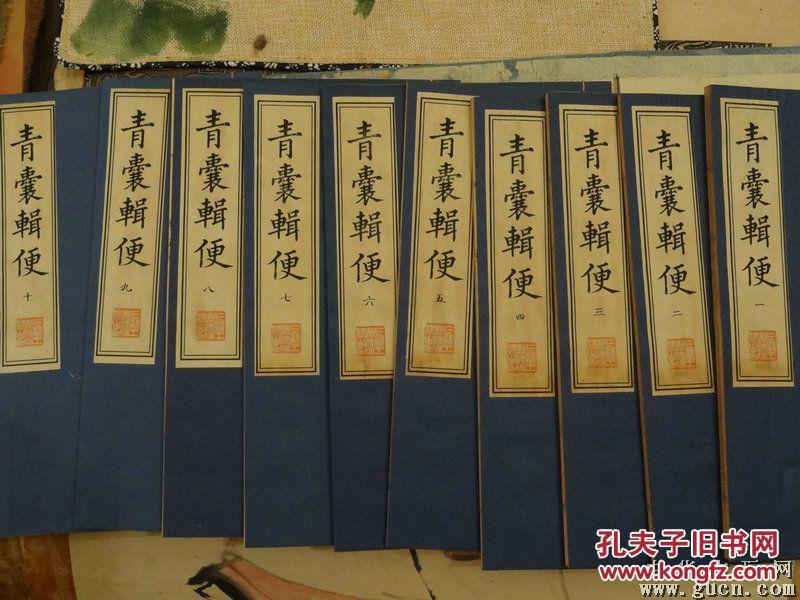 青囊輯便 一
青囊輯便 二
青囊輯便 三
青囊輯便 四
青囊輯便 五
青囊輯便 六
青囊輯便 七
青囊輯便 八
青囊輯便 九
青囊輯便 十
孔夫子旧书网
www.kongfz.com
www.gucn.com